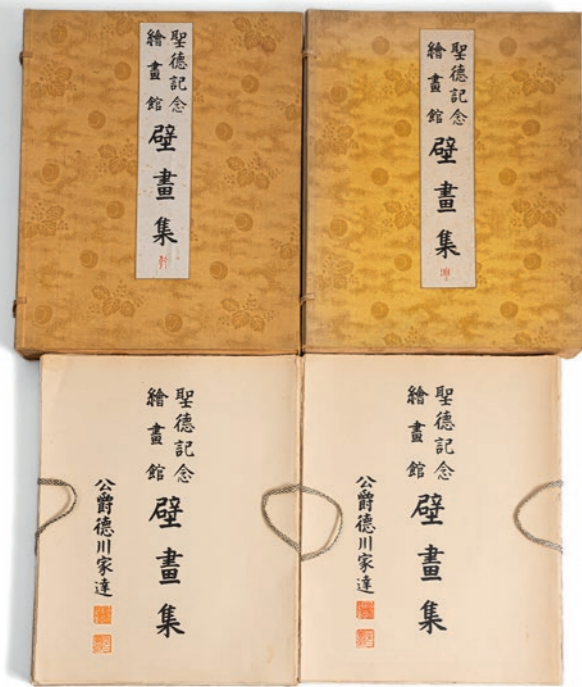 聖德記念
繪畫館
壁畫集
乾
聖德記念
繪畫館
壁畫集
坤
聖德記念
繪畫館
壁畫集
公爵德川家達
聖德記念
繪畫館
壁畫集
公爵德川家達